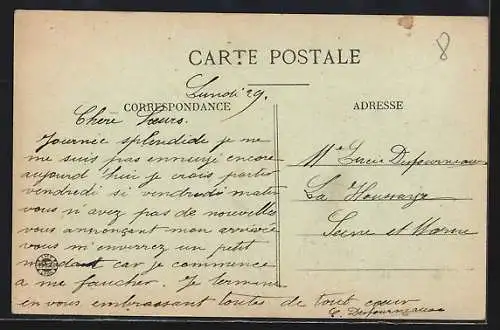 8
CARTE POSTALE
Lundi 29.
CORRESPONDANCE
ADRESSE
Chere Sœurs.
Journée splendide je ne
me suis pas ennuyé encore
aujourd'hui je crois partir
vendredi si vendredi matin
vous n'avez pas de nouvelles
vous annonçant mon arrivée
vous m'enverrez un petit
mandat car je commence
a me faucher. Je termine
en vous embrassant toutes de tout cœur
E. Desfourneaux
Mlle Lucie Desfourneaux
La Houssaye
Seine et Marne